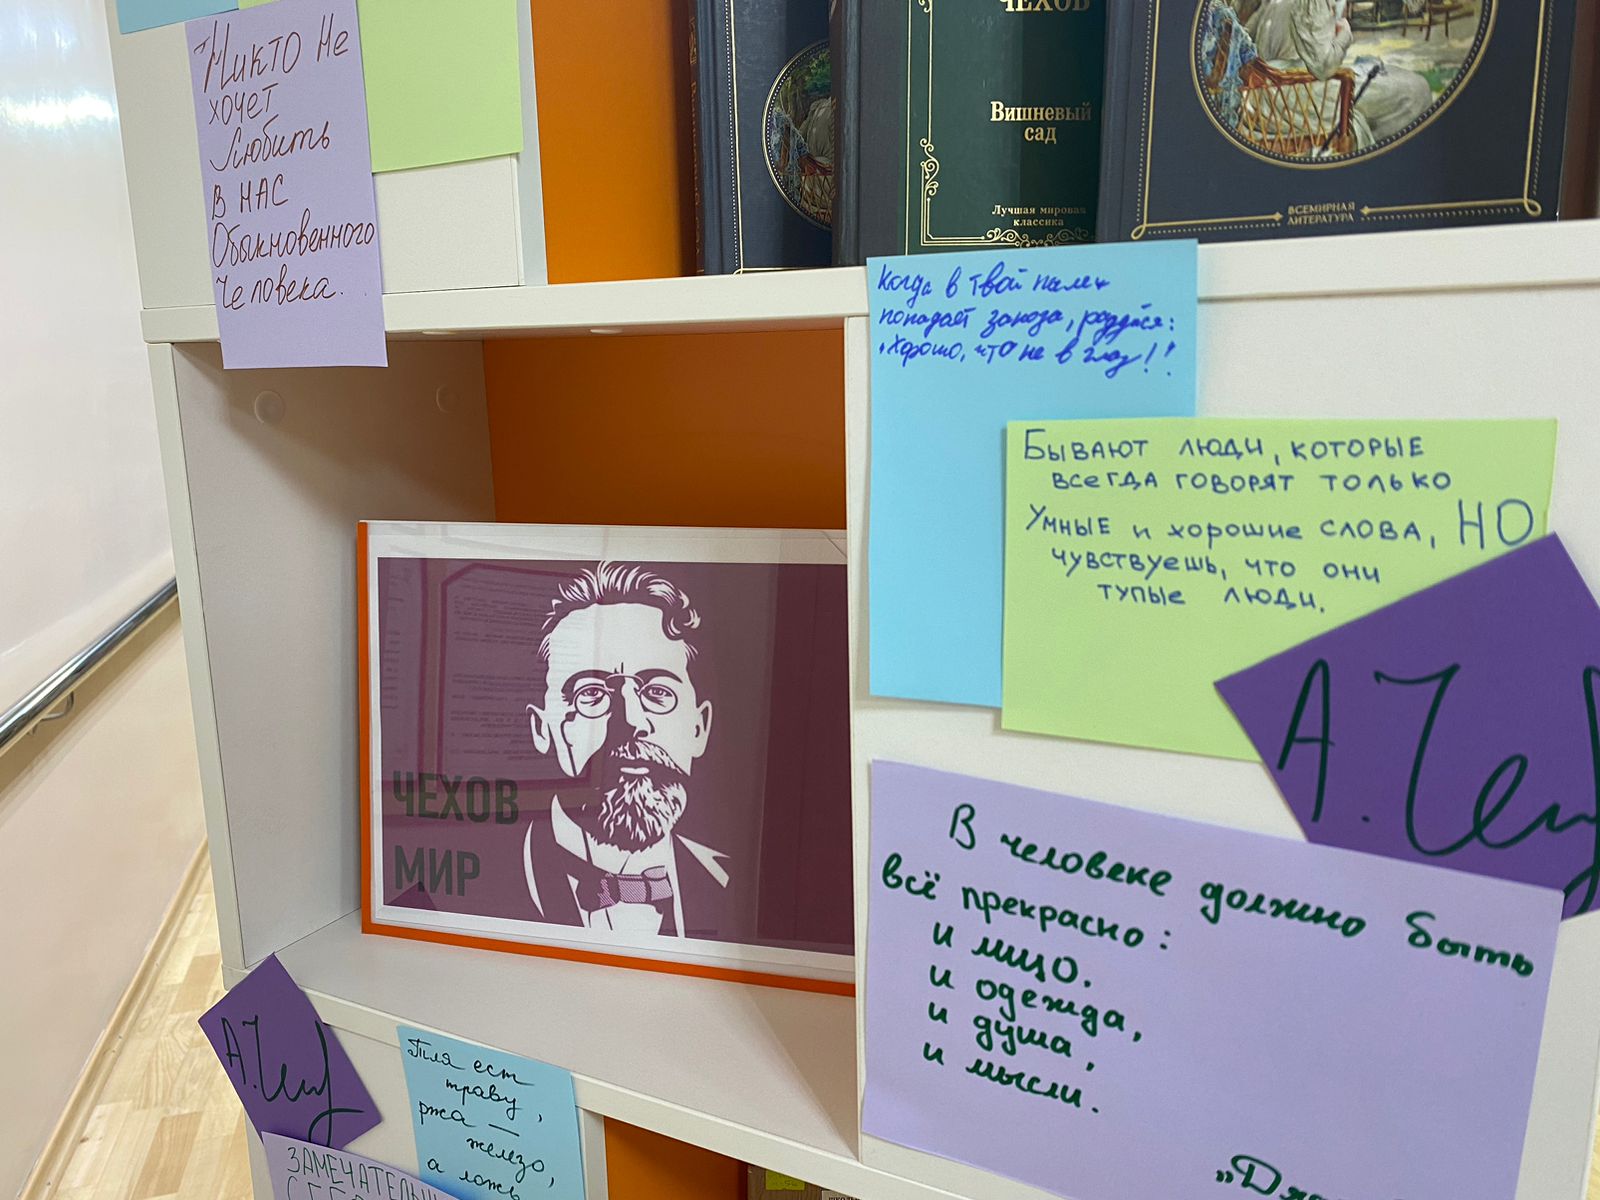 Никто не
хочет
любить
в нас
Обыкновенного
Человека.
ЧЕХОВ
Вишневый
сад
Лучшая мировая
классика
ВСЕМИРНАЯ
ЛИТЕРАТУРА
Когда в твой палец
попадает заноза, радуйся:
"Хорошо, что не в глаз!"
Бывают люди, которые
всегда говорят только
умные и хорошие слова, НО
чувствуешь, что они
тупые люди.
А. Чех
ЧЕХОВ
МИР
В человеке должно быть
всё прекрасно:
и лицо.
и одежда,
и душа,
и мысли.
А. Чех
Тля ест
траву,
ржа —
железо,
а ложь